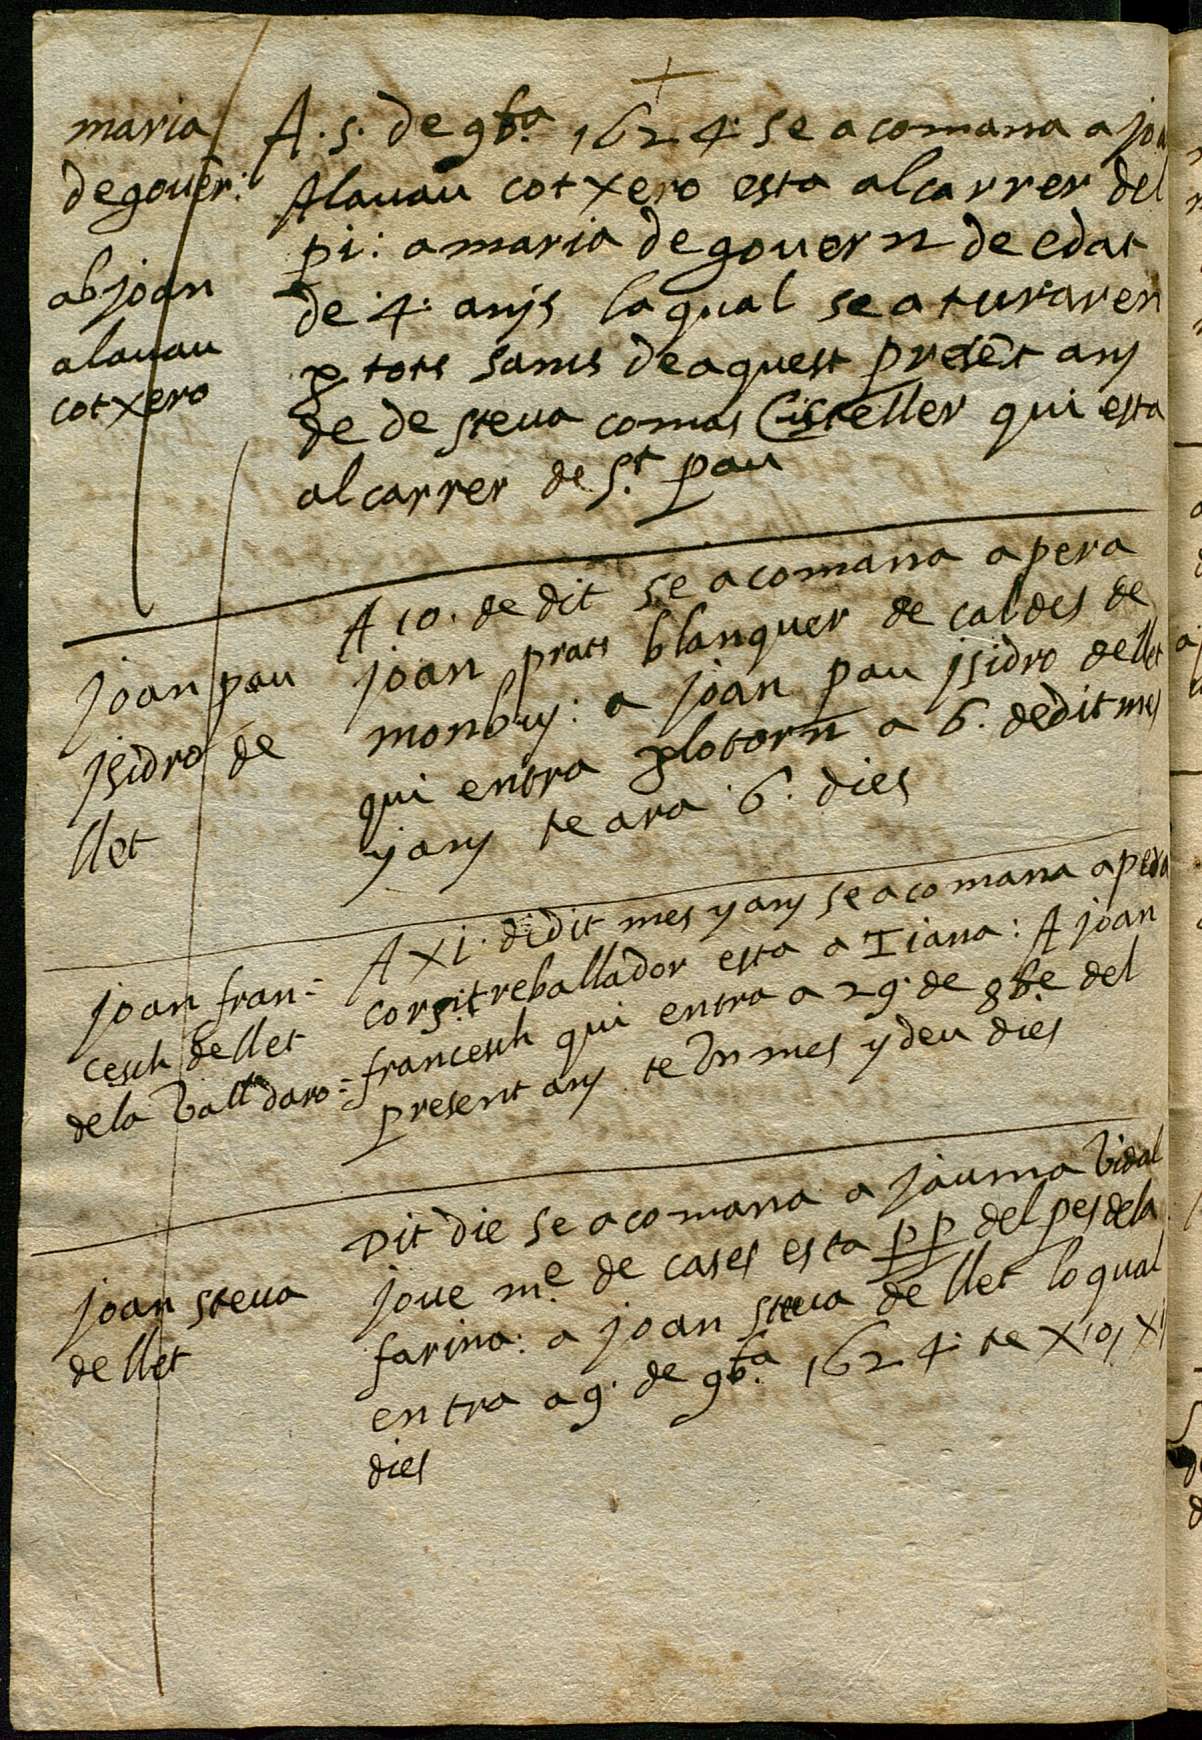 +
maria
degouer:
ab joan
alauau
cotxero
A. 5. de 9b.ª 1624. se acomana a joa
Alauau cotxero esta alcarrer del
pi: a maria degouern de edat
de 4. anÿs laqual se aturaren
p tots sants de aquest present anÿ
de de steua comas Cisteller qui esta
alcarrer de S.t pau
joan pau
jsidro de
llet
A 10. de dit se acomana a pera
joan prats blanquer de caldes de
monbuÿ: a joan pau jsidro dellet
qui entra plotorn a 6. dedit mes
y anÿ te ara 6. dies
joan fran=
cesch dellet
dela Vall daro=
A XI. didit mes y anÿ se acomana a pera
treballador esta a Tiana: A joan
francesch qui entra a 29. de 8b.e del
present anÿ te Vn mes y deu dies
joan steua
de llet
Dit die se acomana a jauma Vidal
joue m.e de cases esta p p del pes dela
farina: a joan steua de llet loqual
entra a 9. de 9b.ª 1624. te
dies